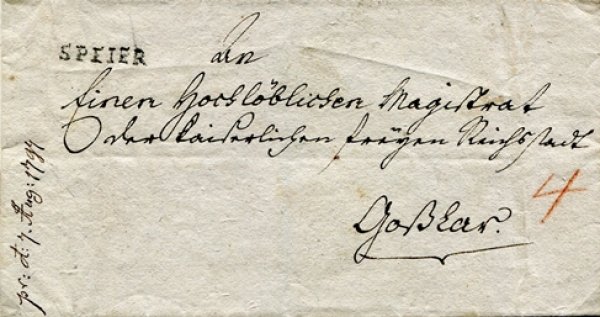 SPEIER
An
Einen Hochlöblichen Magistrat
der Kaiserlichen freyen Reichsstadt
Goßlar.
4
pr: d: 7. Aug: 1794